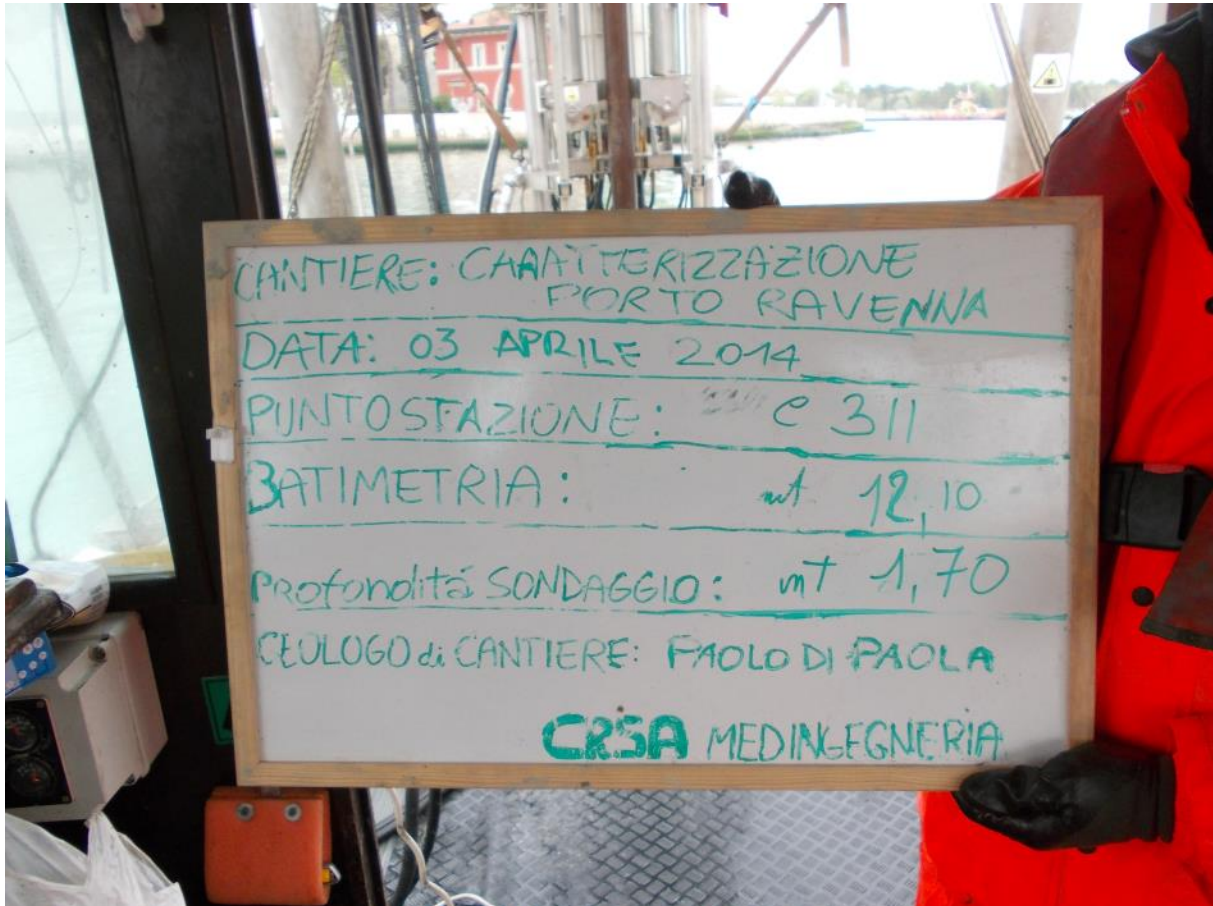 CANTIERE: CARATTERIZZAZIONE
PORTO RAVENNA
DATA: 03 APRILE 2014
PUNTO STAZIONE: C 311
BATIMETRIA: mt 12,10
Profondità SONDAGGIO: mT 1,70
GEOLOGO di CANTIERE: PAOLO DI PAOLA
CRSA MEDINGEGNERIA